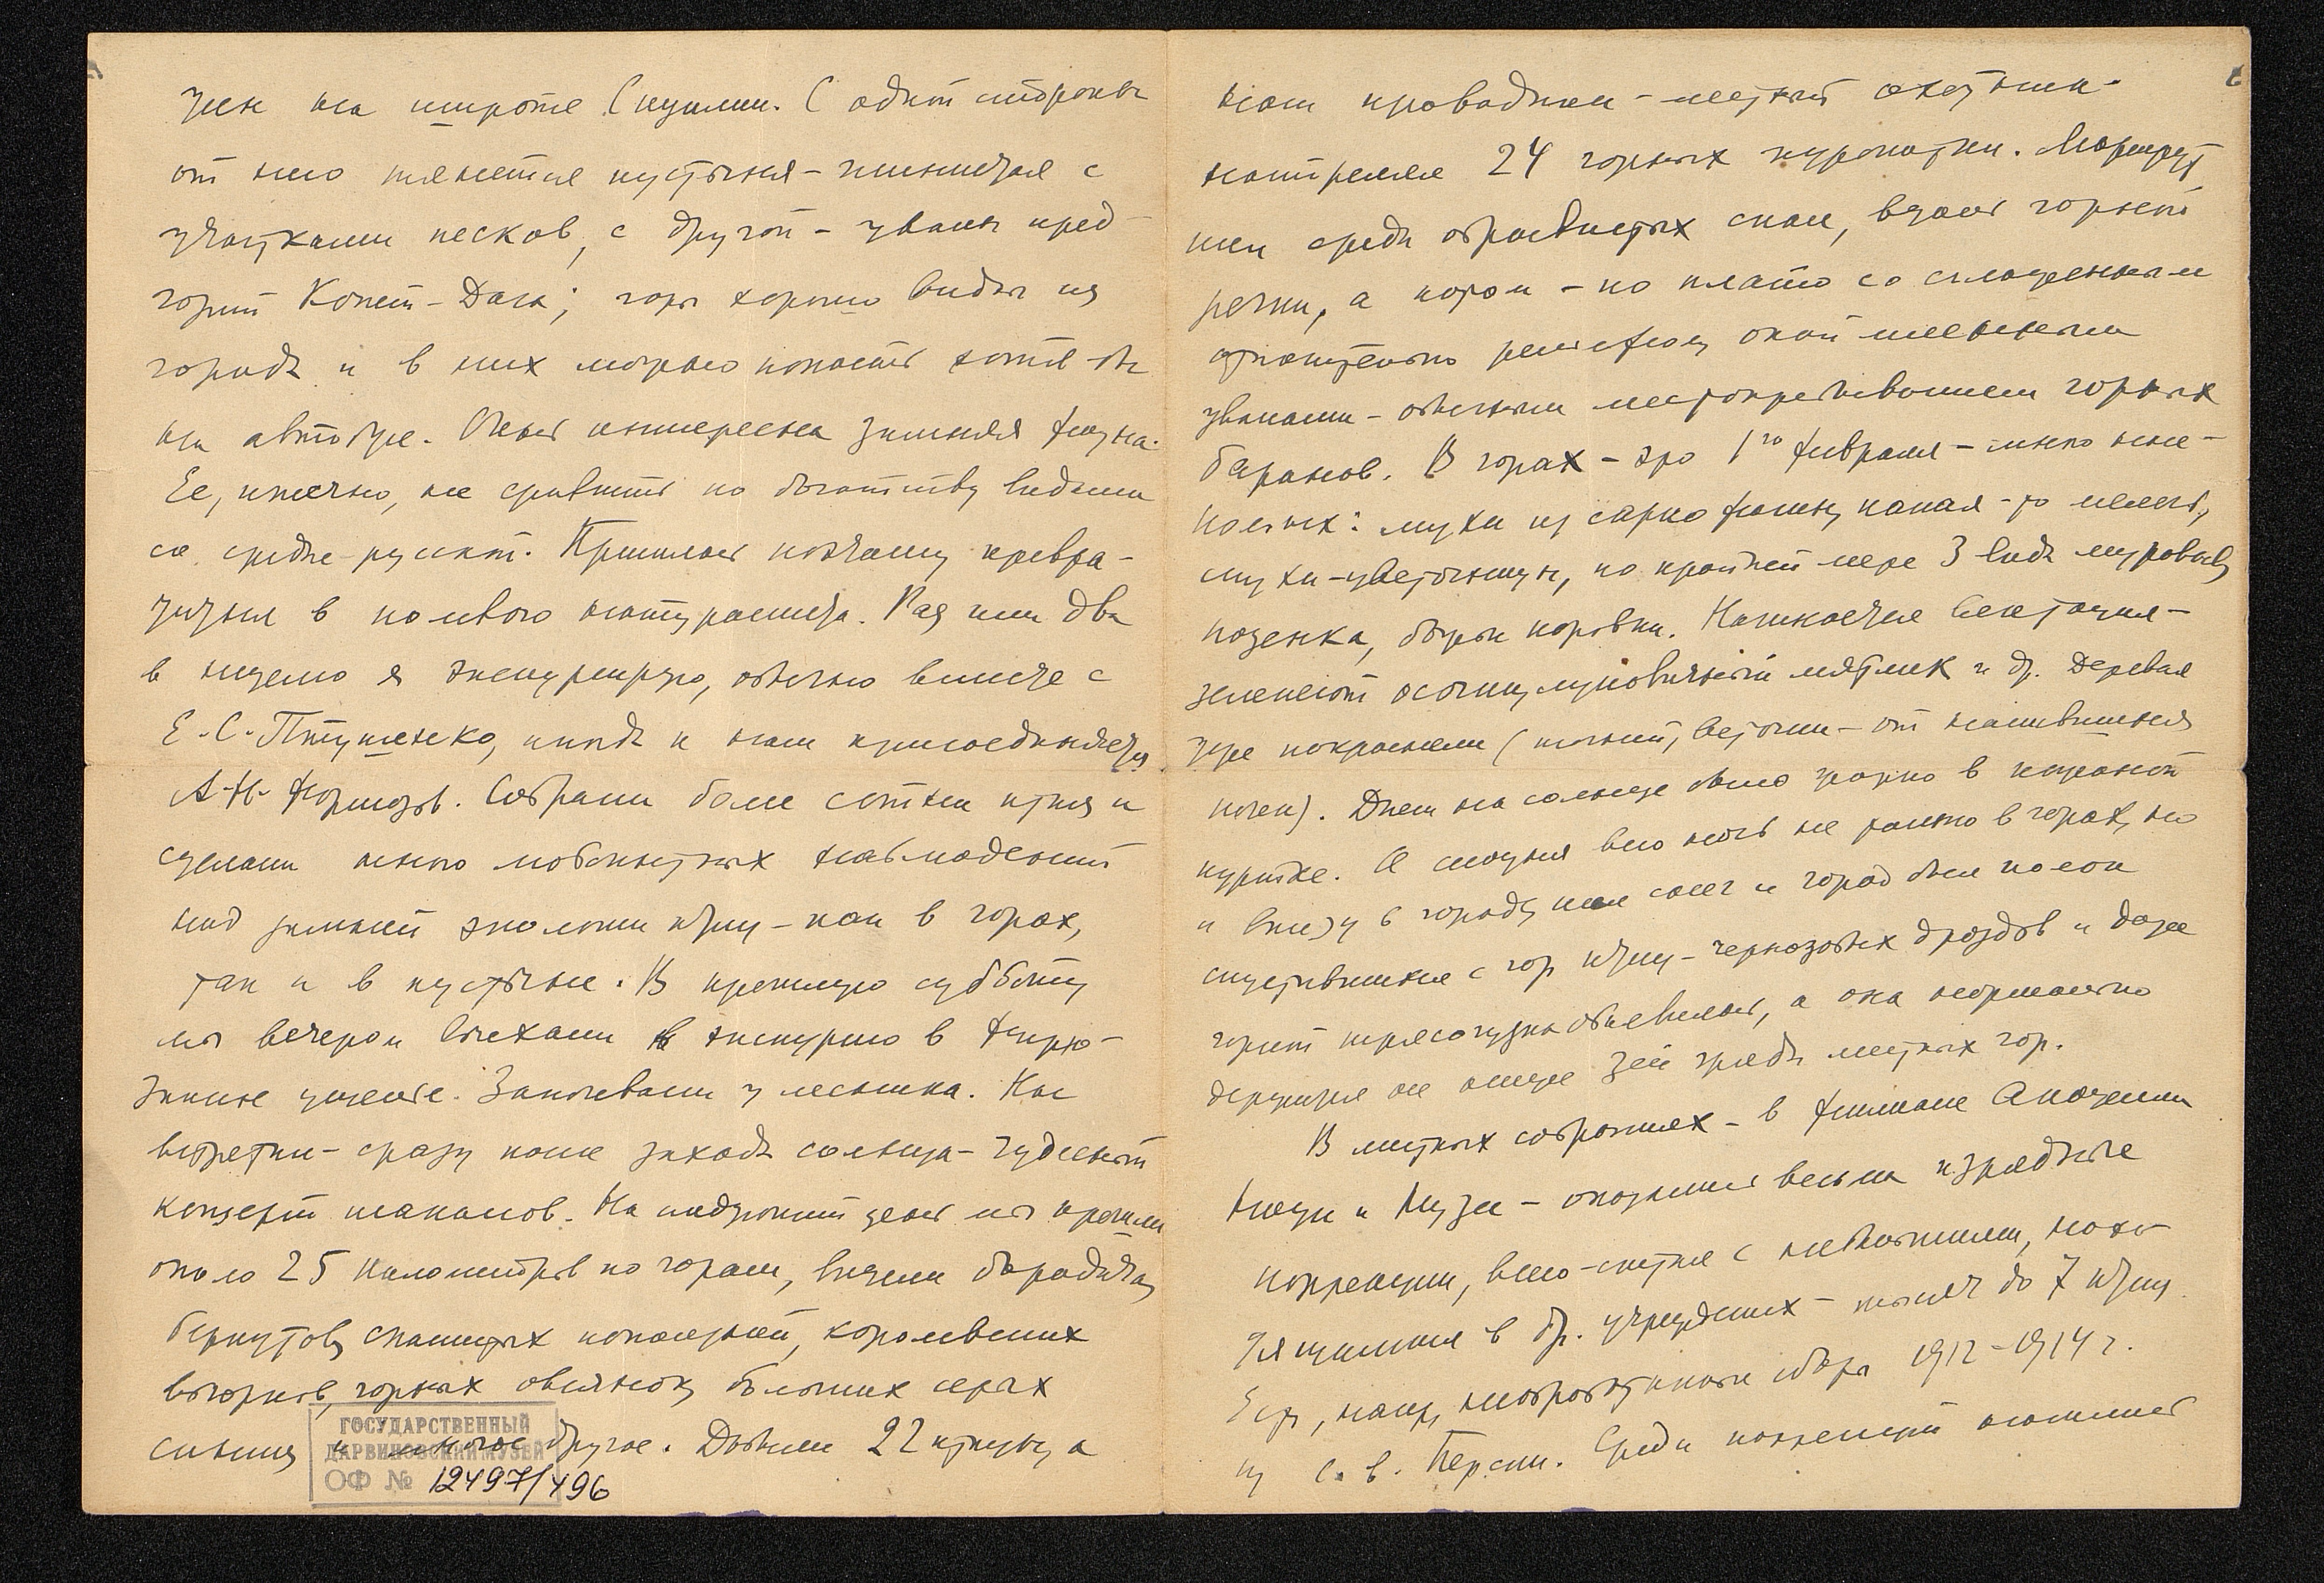 жен на широте Сицилии. С одной стороны
от него тянется пустыня – глинистая с
участками песков, с другой – увалы пред-
горий Копет-Дага; горы хорошо видны из
города и в них можно попасть хотя бы
на автобусе. Очень интересна зимняя фауна.
Ее, конечно, не сравнить по богатству видами
со средне-русской. Пришлось поэтому превра-
титься в полевого натуралиста. Раз или два
в неделю я экскурсирую, обычно вместе с
Е.С. Птушенко, иногда к нам присоединяется
А.Н. Формозов. Собрали более сотни птиц и
сделали много любопытных наблюдений
над зимней экологии птиц – как в горах,
так и в пустыне. В прошлую субботу
мы вечером выехали в экскурсию в Фирю-
зинское ущелье. Заночевали у лесника. Нас
встретил – сразу после захода солнца – чудесный
концерт шакалов. На следующий день мы прошли
около 25 километров по горам, видели бородача,
беркутов, скалистых поползней, королевских
вьюрков, горных овсянок, больших серых
синиц и многое другое. Добыли 22 птицы, а
ГОСУДАРСТВЕННЫЙ
ДАРВИНОВСКИЙ МУЗЕЙ
ОФ № 12497/496
наш проводник – местный охотник –
настрелял 24 горных куропатки. Маршрут
шел среди обрывистых скал, вдоль горной
речки, а потом – по плато со сглаженным
относительно рельефом,
увалами – обычным местопребыванием горных
баранов. В горах – это 1го февраля – много насе-
комых: мухи из саркофагин, какая-то мелочь,
мухи-цветочницы, по крайней мере 3 вида муравьев,
поденка, божьи коровки. Начинается вегетация –
зеленеют осочки, луковичный мятлик и др. Деревья
уже покраснели ( ветви – от налившихся
почек). Днем на солнце было жарко в кожаной
куртке. А сегодня всю ночь не только в горах, но
и внизу в городе, шел снег и город был полон
спустившихся с гор птиц – чернозобых дроздов и даже
горной трясогузки объявилась, а она нормально
держится не ниже гряды местных гор.
В местных собраниях – в филиале Академии
Наук и Музее – оказались весьма изрядные
коллекции, всего-считая с небольшими, нахо-
дящимися в др. учреждениях – тысяч до 7 птиц.
Есть, напр., необработанные сборы 1912–1914 г.
из С.-В. Персии. Среди коллекций нашлись